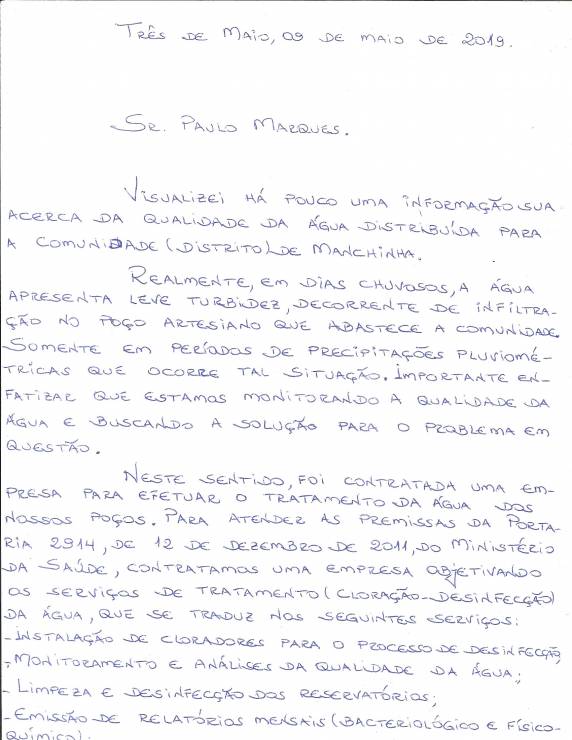 TRÊS DE MAIO, 09 DE MAIO DE 2019.
SR. PAULO MARQUES.
VISUALIZEI HÁ POUCO UMA INFORMAÇÃO SUA
ACERCA DA QUALIDADE DA ÁGUA DISTRIBUÍDA PARA
A COMUNIDADE (DISTRITO) DE MANCHINHA.
REALMENTE, EM DIAS CHUVOSOS, A ÁGUA
APRESENTA LEVE TURBIDEZ, DECORRENTE DE INFILTRA-
ÇÃO NO POÇO ARTESIANO QUE ABASTECE A COMUNIDADE.
SOMENTE EM PERÍODOS DE PRECIPITAÇÕES PLUVIOMÉ-
TRICAS QUE OCORRE TAL SITUAÇÃO. IMPORTANTE EN-
FATIZAR QUE ESTAMOS MONITORANDO A QUALIDADE DA
ÁGUA E BUSCANDO A SOLUÇÃO PARA O PROBLEMA EM
QUESTÃO.
NESTE SENTIDO, FOI CONTRATADA UMA EM-
PRESA PARA EFETUAR O TRATAMENTO DA ÁGUA DOS
NOSSOS POÇOS. PARA ATENDER AS PREMISSAS DA PORTA-
RIA 2914, DE 12 DE DEZEMBRO DE 2011, DO MINISTÉRIO
DA SAÚDE, CONTRATAMOS UMA EMPRESA OBJETIVANDO
OS SERVIÇOS DE TRATAMENTO (CLORAÇÃO-DESINFECÇÃO)
DA ÁGUA, QUE SE TRADUZ NOS SEGUINTES SERVIÇOS:
- INSTALAÇÃO DE CLORADORES PARA O PROCESSO DE DESINFECÇÃO;
- MONITORAMENTO E ANÁLISES DA QUALIDADE DA ÁGUA;
- LIMPEZA E DESINFECÇÃO DOS RESERVATÓRIOS;
- EMISSÃO DE RELATÓRIOS MENSAIS (BACTERIOLÓGICO E FÍSICO-
QUÍMICO);